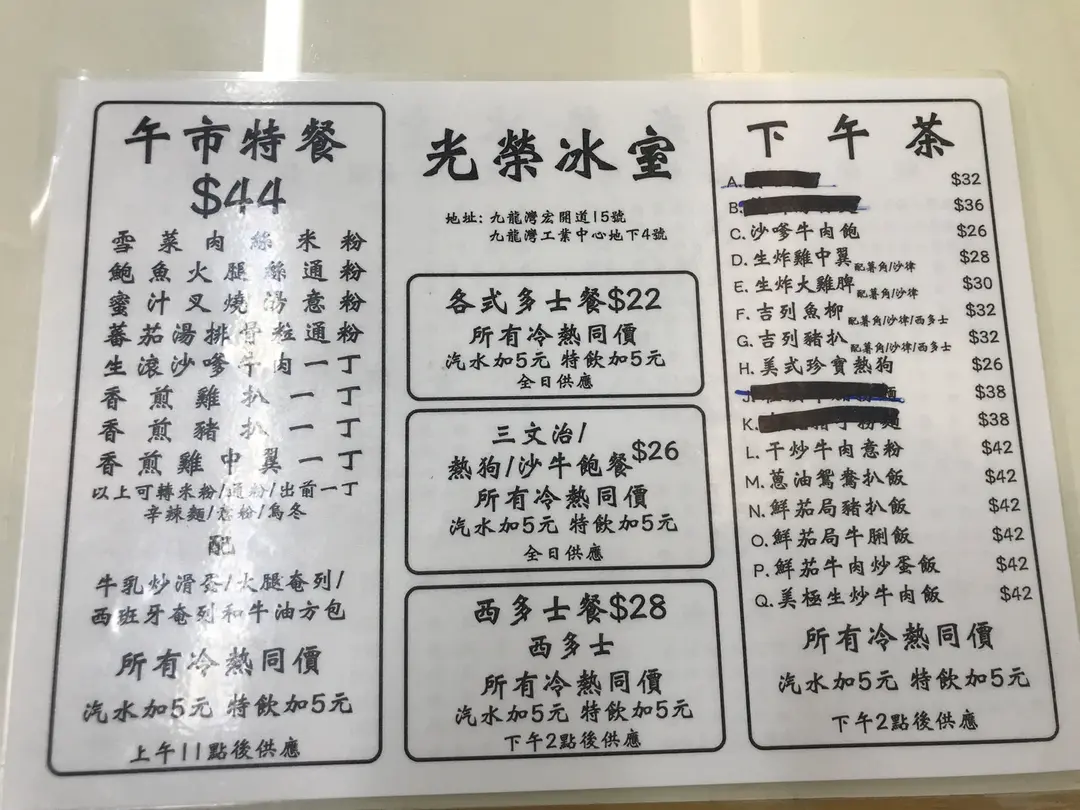 午市特餐
$44
雪菜肉絲米粉
鮑魚火腿絲通粉
蜜汁叉燒湯意粉
蕃茄湯排骨粒通粉
生滾沙嗲牛肉一丁
香煎雞扒一丁
香煎豬扒一丁
香煎雞中翼一丁
以上可轉米粉/通粉/出前一丁
辛辣麵/意粉/烏冬
配
牛乳炒滑蛋/火腿奄列/
西班牙奄列和牛油方包
所有冷熱同價
汽水加5元 特飲加5元
上午11點後供應
光榮冰室
地址: 九龍灣宏開道15號
九龍灣工業中心地下4號
各式多士餐$22
所有冷熱同價
汽水加5元 特飲加5元
全日供應
三文治/
熱狗/沙牛飽餐$26
所有冷熱同價
汽水加5元 特飲加5元
全日供應
西多士餐$28
西多士
所有冷熱同價
汽水加5元 特飲加5元
下午2點後供應
下午茶
A. $32
B. $36
C. 沙嗲牛肉飽 $26
D. 生炸雞中翼配薯角/沙律 $28
E. 生炸大雞脾配薯角/沙律 $30
F. 吉列魚柳配薯角/沙律/西多士 $32
G. 吉列豬扒配薯角/沙律/西多士 $32
H. 美式珍寶熱狗 $26
J. 麵 $38
K. $38
L. 干炒牛肉意粉 $42
M. 蔥油鴛鴦扒飯 $42
N. 鮮茄局豬扒飯 $42
O. 鮮茄局牛脷飯 $42
P. 鮮茄牛肉炒蛋飯 $42
Q. 美極生炒牛肉飯 $42
所有冷熱同價
汽水加5元 特飲加5元
下午2點後供應